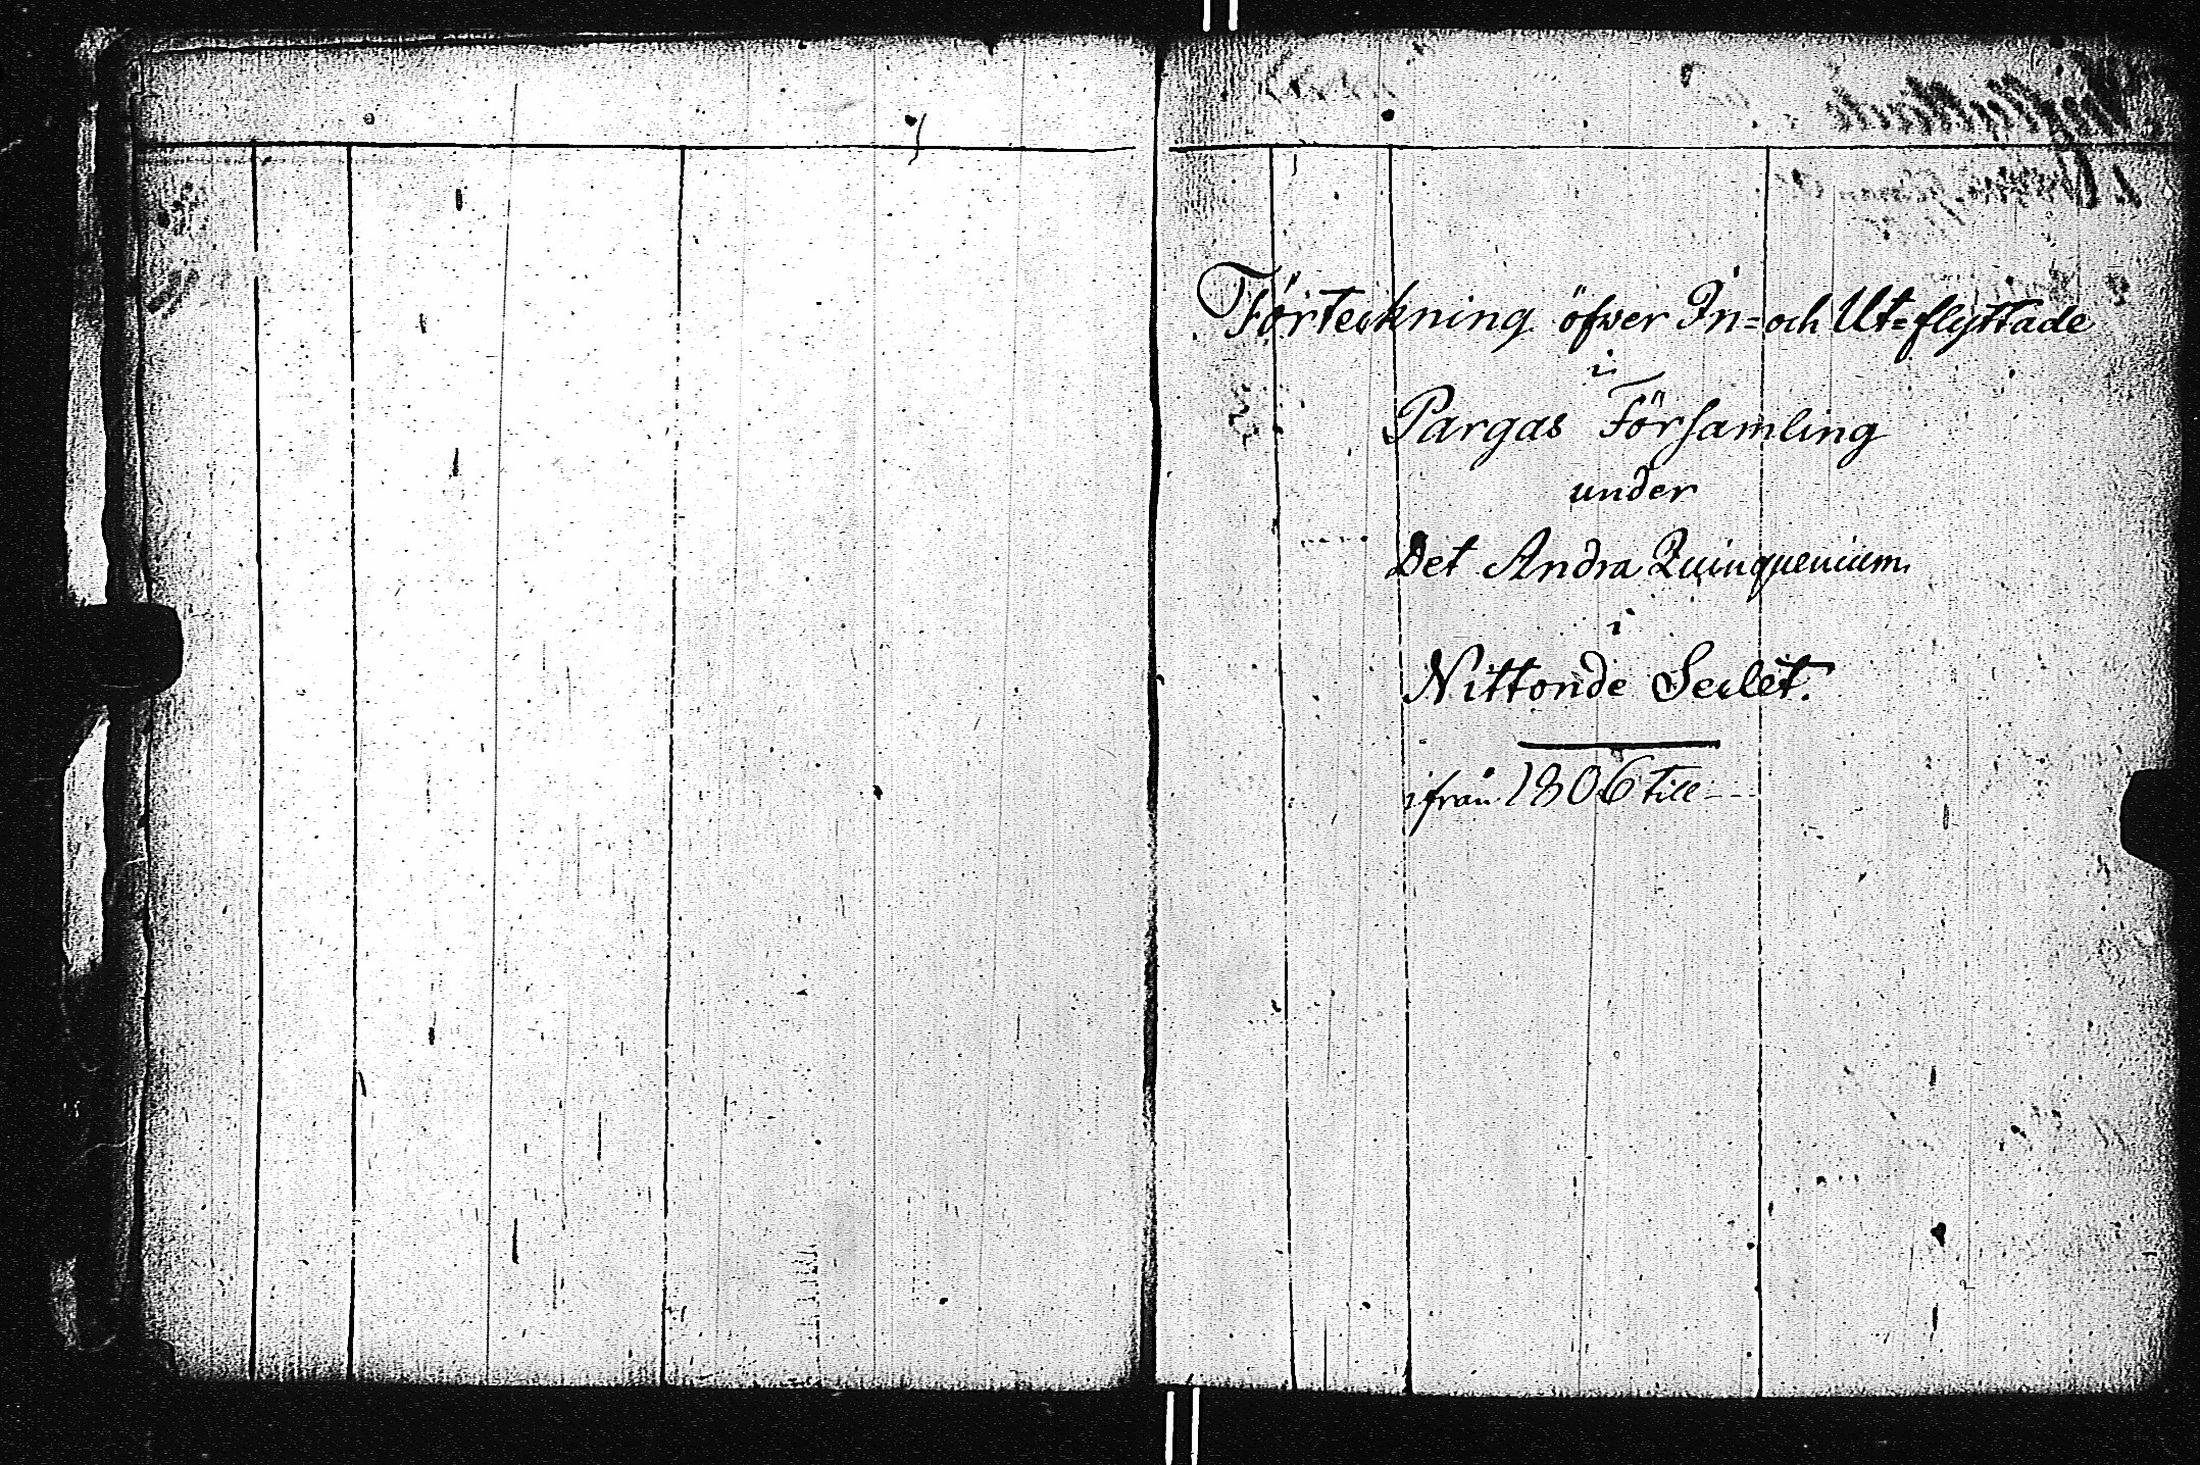 Förteckning öfwer In= och Ut=flyttade
i
Pargas Församling
under
Det Andra Quinquenium
i
Nittonde Seclet.
ifrån 1806 till